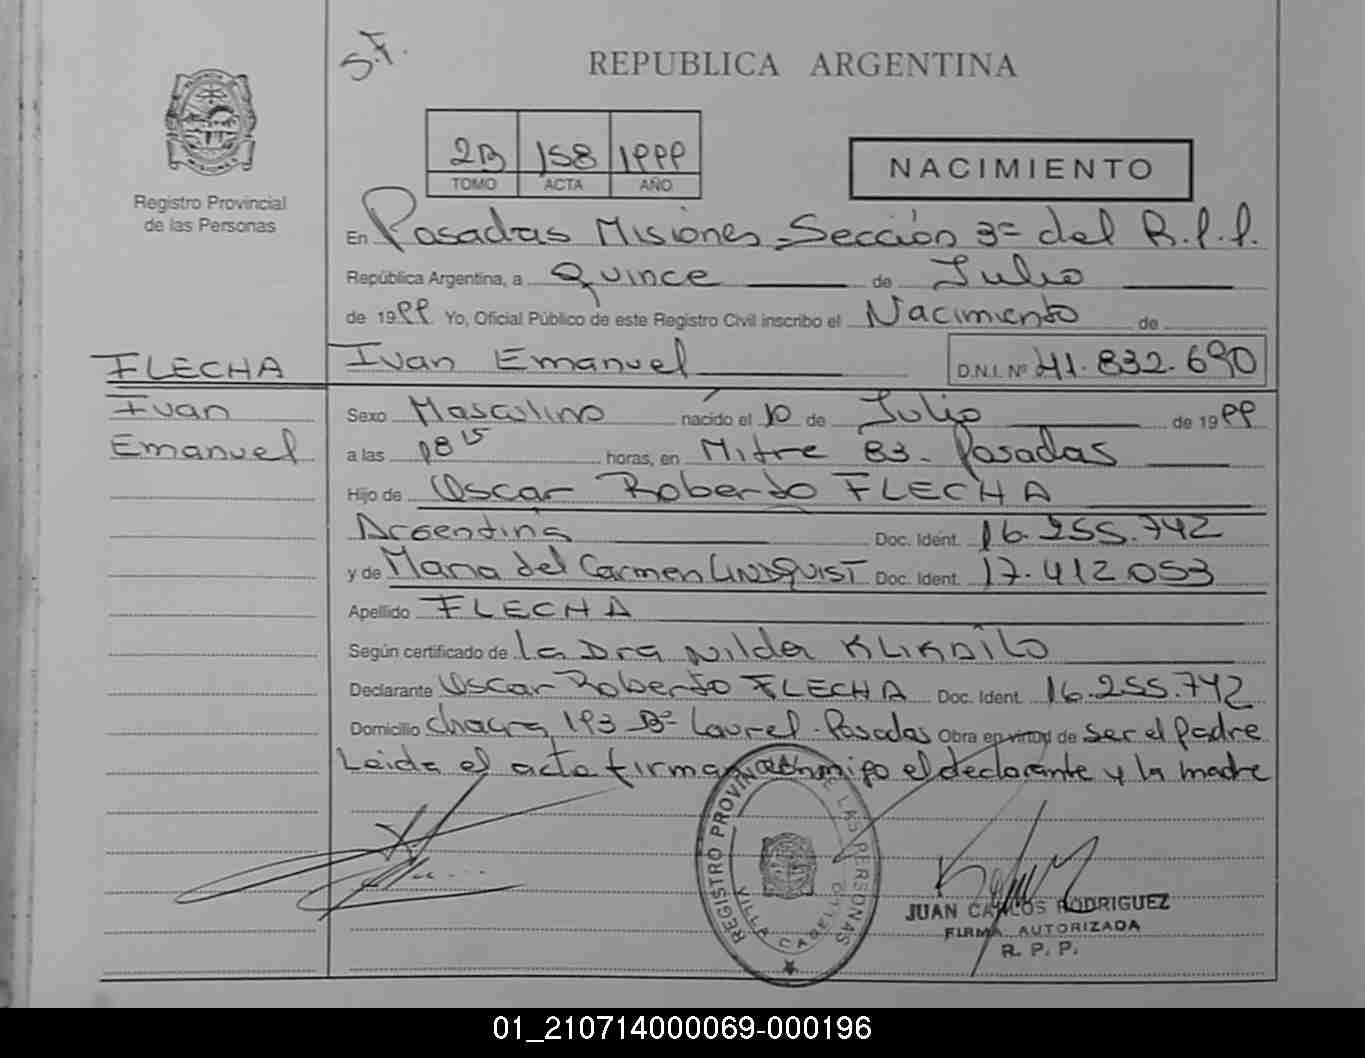 S.F.
REPUBLICA ARGENTINA
2B 158 1999
TOMO ACTA AÑO
NACIMIENTO
Registro Provincial
de las Personas
En Posadas Misiones - Sección 3ª del R.P.P.
República Argentina, a Quince de Julio
de 1999 Yo, Oficial Público de este Registro Civil inscribo el Nacimiento de
FLECHA
Ivan Emanuel D.N.I. Nº 41.832.690
Ivan
Emanuel
Sexo Masculino nacido el 10 de Julio de 1999
a las 1815 horas, en Mitre 83 - Posadas
Hijo de Oscar Roberto FLECHA
Argentina Doc. Ident. 16.255.742
y de Maria del Carmen LINDQUIST Doc. Ident. 17.412.053
Apellido FLECHA
Según certificado de la Dra Nilda
Declarante Oscar Roberto FLECHA Doc. Ident. 16.255.742
Domicilio chacra 193 Bº Laurel - Posadas Obra en virtud de ser el padre
Leida el acta firman conmigo el declarante y la madre
REGISTRO PROVINCIAL DE LAS PERSONAS
VILLA CABELLO
JUAN CARLOS RODRIGUEZ
FIRMA AUTORIZADA
R. P. P.
01_210714000069-000196